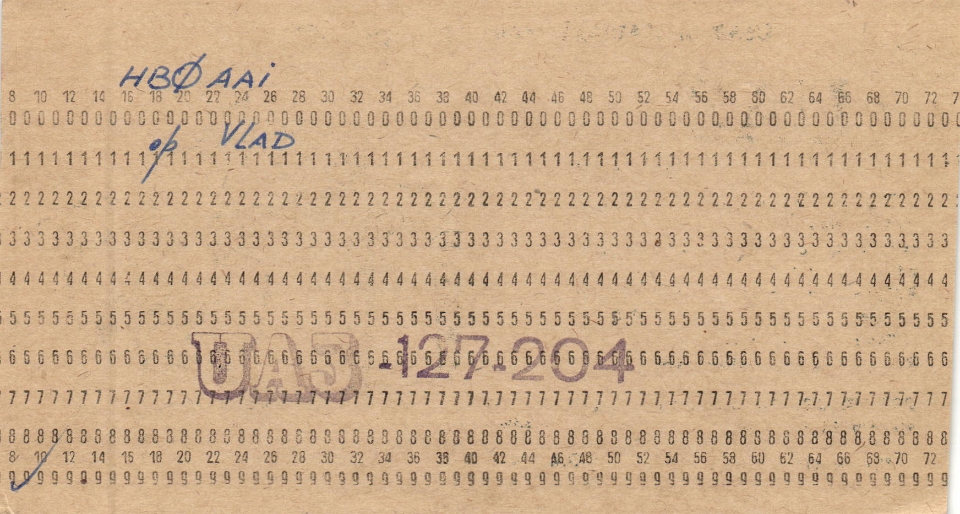 HBØAAi
8 10 12 14 16 18 20 22 24 26 28 30 32 34 36 38 40 42 44 46 48 50 52 54 56 58 60 62 64 66 68 70 72
000000000000000000000000000000000000000000000000000000000000000000
op VLAD
111111111111111111111111111111111111111111111111111111111111111111
222222222222222222222222222222222222222222222222222222222222222222
333333333333333333333333333333333333333333333333333333333333333333
444444444444444444444444444444444444444444444444444444444444444444
555555555555555555555555555555555555555555555555555555555555555555
666666666666666666666666666666666666666666666666666666666666666666
UA3-127-204
777777777777777777777777777777777777777777777777777777777777777777
888888888888888888888888888888888888888888888888888888888888888888
8 10 12 14 16 18 20 22 24 26 28 30 32 34 36 38 40 42 44 46 48 50 52 54 56 58 60 62 64 66 68 70 72
999999999999999999999999999999999999999999999999999999999999999999